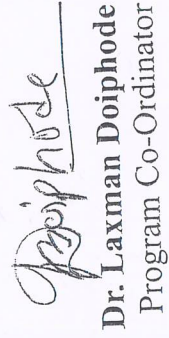 Doiphode
Dr. Laxman Doiphode
Program Co-Ordinator